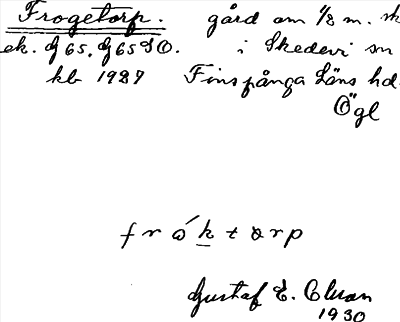 Frogetorp. gård om 1/2 m. sk
ek. G65. G65SO. i Skedevi sn
kb 1927 Finspånga Läns hd.
Ögl
fr ó k t o rp
Gustaf E.
1930